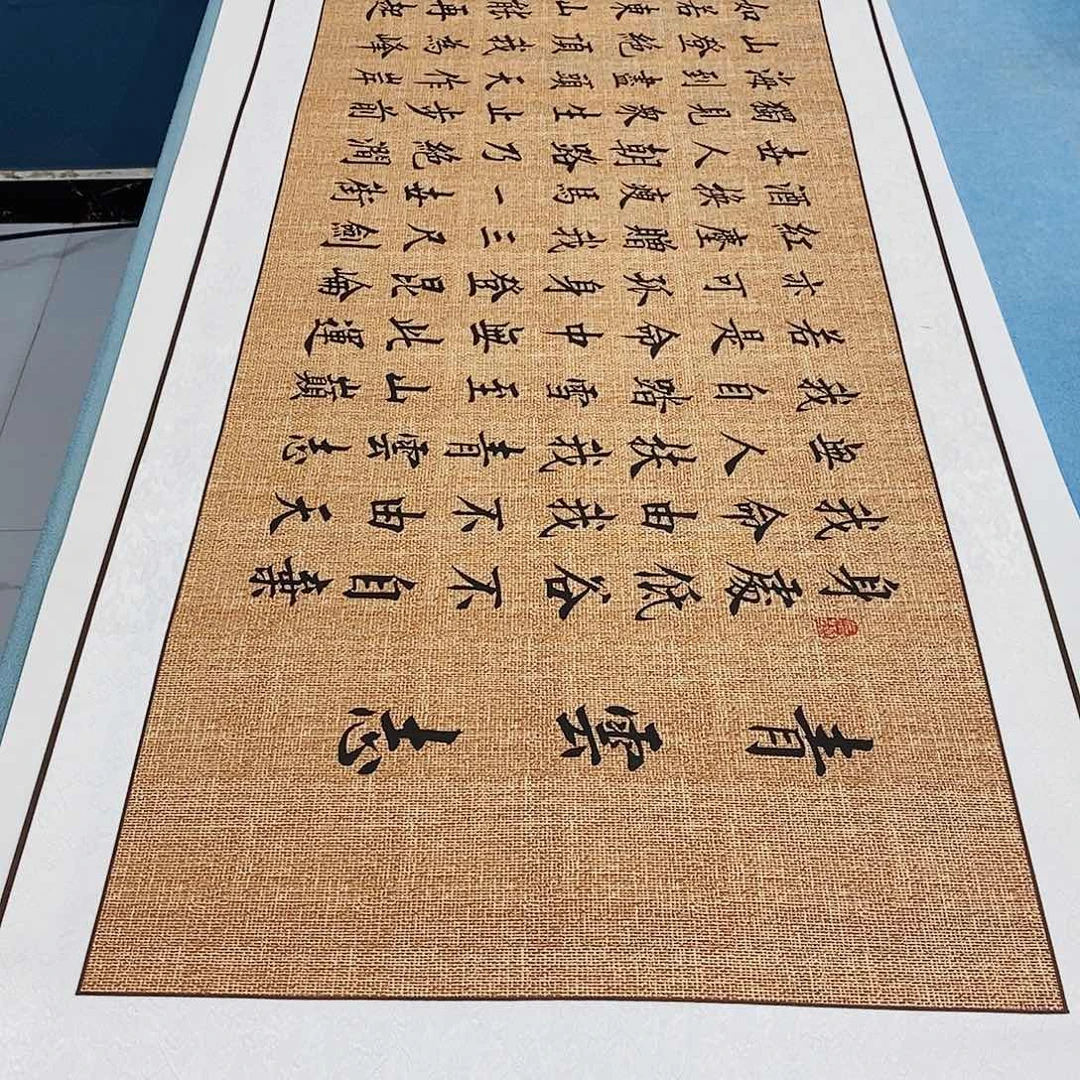 青雲志
身處低谷不自棄
我命由我不由天
無人扶我青雲志
我自踏雪至山巔
若是命中無此運
亦可孤身登昆崘
紅塵贈我三尺劍
酒瘦馬一壺
人朝路乃絕澗
獨見衆生止步前
海到盡頭天作岸
山登絕頂我為峰
如若東山能再起